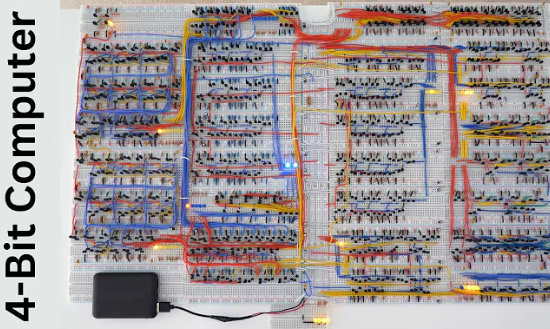 4-Bit Computer